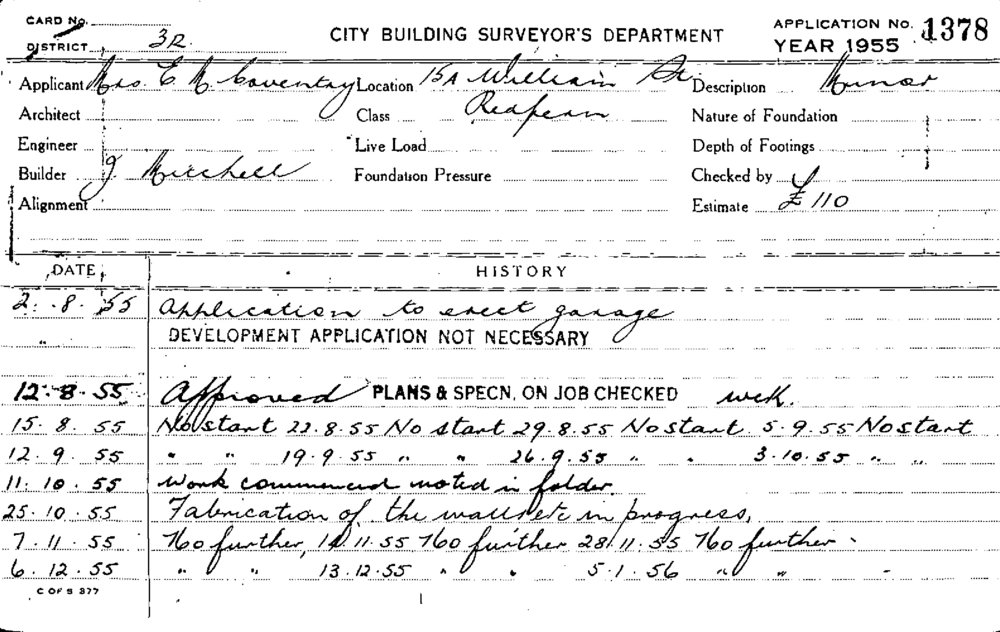 CARD No.
DISTRICT 3R
CITY BUILDING SURVEYOR'S DEPARTMENT
APPLICATION No. 1378
YEAR 1955
Applicant Mrs. E. M. Coventry Location 15A William St Description Minor
Architect Class Redfern Nature of Foundation
Engineer Live Load Depth of Footings
Builder J. Mitchell Foundation Pressure Checked by
Alignment Estimate £110
DATE HISTORY
2. 8. 55 Application to erect garage
" DEVELOPMENT APPLICATION NOT NECESSARY
12. 8. 55 Approved PLANS & SPECN. ON JOB CHECKED
15. 8. 55 No start 22.8.55 No start 29.8.55 No start 5.9.55 No start
12. 9. 55 " " 19.9.55 " " 26.9.55 " " 3.10.55 " "
11. 10. 55 Work commenced noted in folder.
25. 10. 55 Fabrication of the walls etc in progress,
7. 11. 55 No further, 14.11.55 No further 28.11.55 No further -
6. 12. 55 " " 13.12.55 " " 5.1.56 " " -
C OF S 377